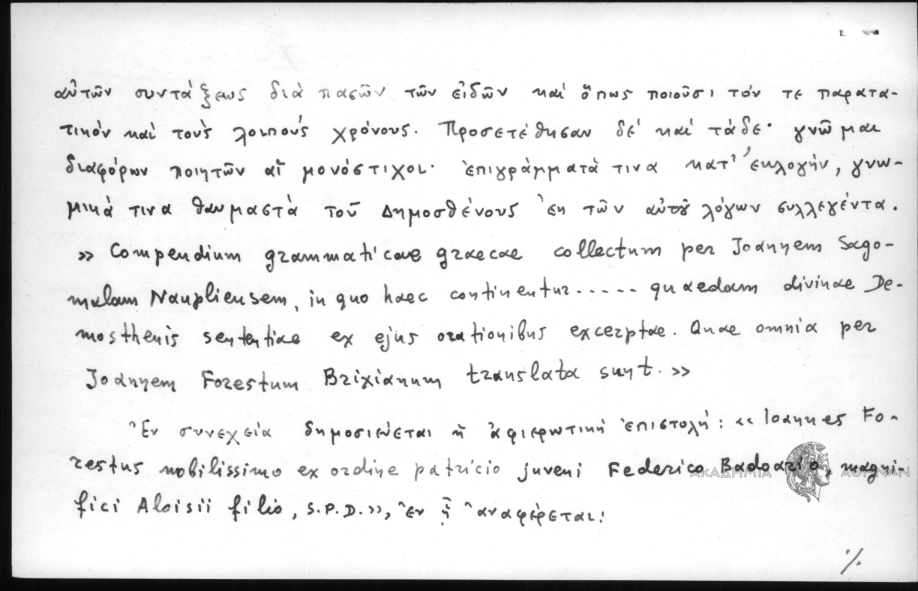 αὐτῶν συντάξεως διὰ πασῶν τῶν εἰδῶν καί ὅπως ποιοῦσι τόν τε παρατα-
τικόν καί τούς λοιπούς χρόνους. Προσετέθησαν δέ καί τάδε· γνῶμαι
διαφόρων ποιητῶν αἵ μονόστιχοι· ἐπιγράμματά τινα κατ' ἐκλογήν, γνω-
μικά τινα θαυμαστά τοῦ Δημοσθένους ἐκ τῶν αὐτοῦ λόγων συλλεγέντα.
» Compendium grammaticae graecae collectum per Joannem Sago-
malam Naupliensem, in quo haec continentur ----- quaedam divinae De-
mosthenis sententiae ex ejus orationibus excerptae. Quae omnia per
Joannem Forestum Brixianum translata sunt. »
Ἐν συνεχείᾳ δημοσιεύεται ἡ ἀφιερωτική ἐπιστολή: « Ioannes Fo-
restus nobilissimo ex ordine patricio juveni Federico Badoario, magni-
fici Aloisii filio, S.P.D.», ἐν ᾗ ἀναφέρεται:
ΑΚΑΔΗΜΙΑ ΑΘΗΝΩΝ
./.